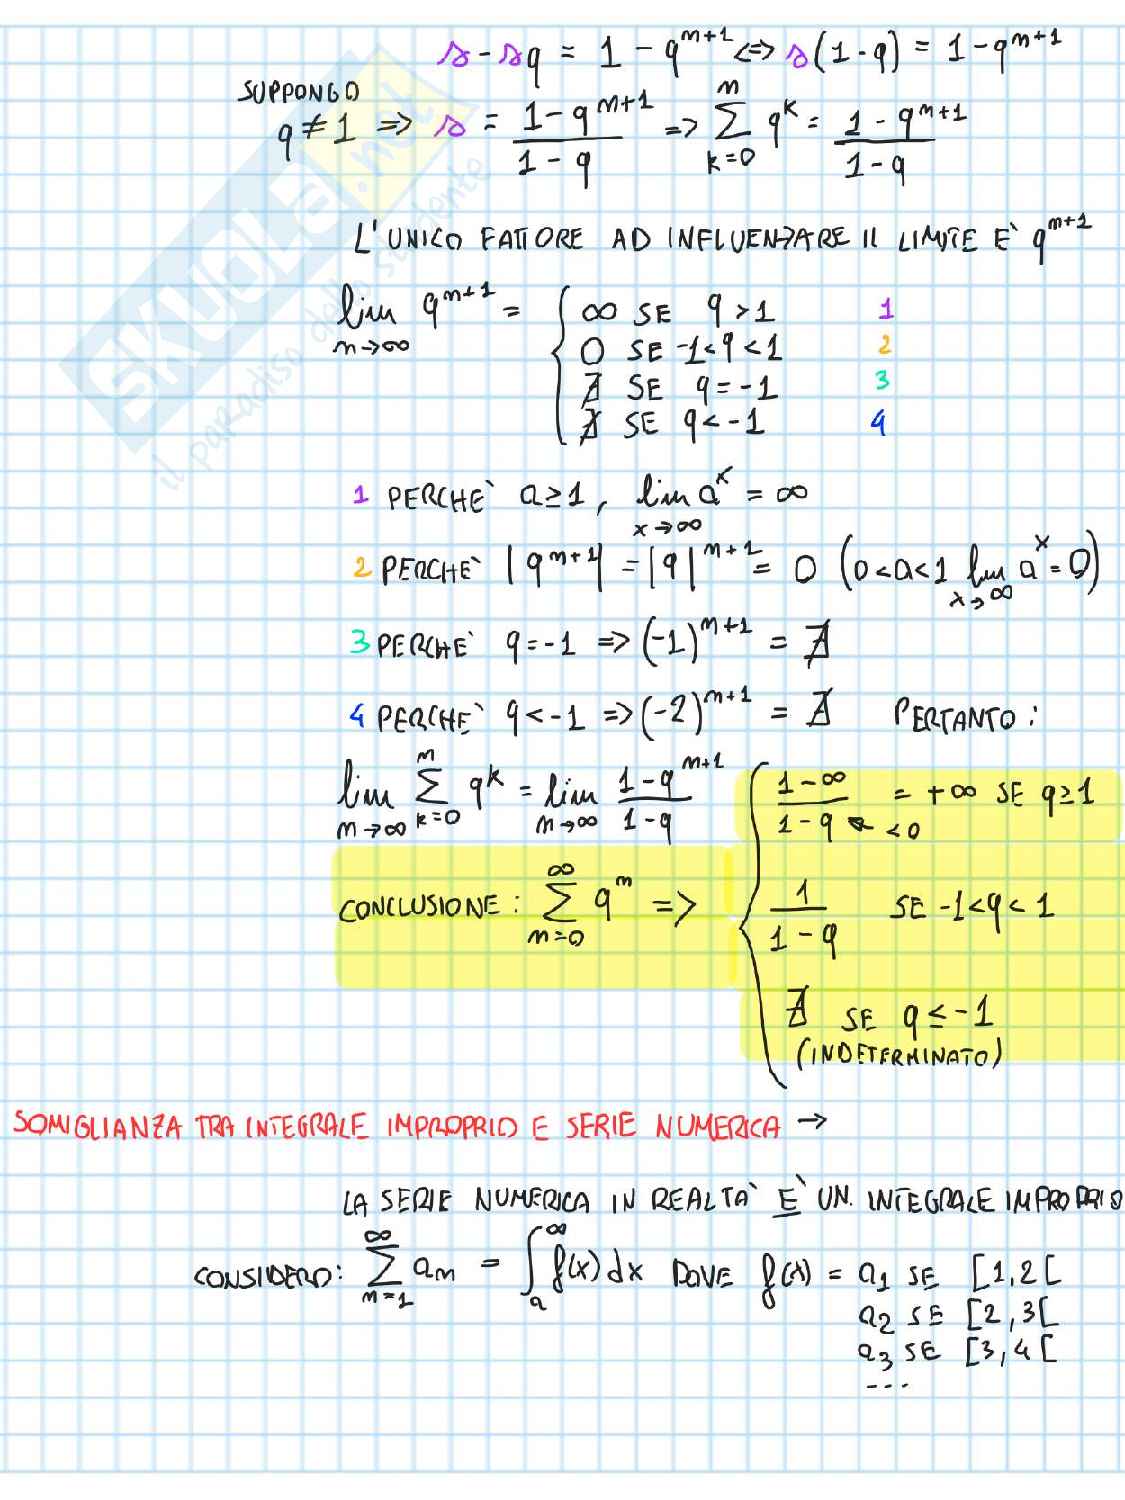 s - sq = 1 - q^{n+1} <=> s(1-q) = 1 - q^{n+1}
SUPPONGO
q ≠ 1 => s = \frac{1-q^{n+1}}{1-q} => \sum_{k=0}^{n} q^k = \frac{1-q^{n+1}}{1-q}
L'UNICO FATTORE AD INFLUENZARE IL LIMITE E' q^{n+1}
lim_{n→∞} q^{n+1} = { ∞ SE q > 1 1
0 SE -1<q<1 2
∄ SE q = -1 3
∄ SE q < -1 4
1 PERCHE' a ≥ 1, lim_{x→∞} a^x = ∞
2 PERCHE' |q^{n+1}| = |q|^{n+1} = 0 (0<a<1 lim_{x→∞} a^x = 0)
3 PERCHE' q = -1 => (-1)^{n+1} = ∄
4 PERCHE' q < -1 => (-2)^{n+1} = ∄ PERTANTO:
lim_{n→∞} \sum_{k=0}^{n} q^k = lim_{n→∞} \frac{1-q^{n+1}}{1-q} { \frac{1-∞}{1-q} ← <0 = +∞ SE q ≥ 1
CONCLUSIONE: \sum_{n=0}^{∞} q^n => \frac{1}{1-q} SE -1<q<1
∄ SE q ≤ -1
(INDETERMINATO)
SOMIGLIANZA TRA INTEGRALE IMPROPRIO E SERIE NUMERICA →
LA SERIE NUMERICA IN REALTA' E' UN. INTEGRALE IMPROPRIO
CONSIDERO: \sum_{n=1}^{∞} a_n = \int_a^{∞} f(x)dx DOVE f(x) = a_1 SE [1,2[
a_2 SE [2,3[
a_3 SE [3,4[
...
SKUOLA.net
il paradiso dello studente